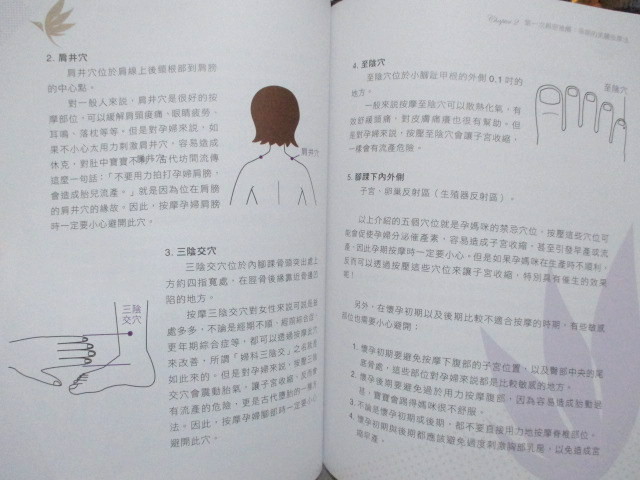 2. 肩井穴
肩井穴位於肩線上後頸根部到肩膀
的中心點。
對一般人來說，肩井穴是很好的按
摩部位，可以緩解肩頸痠痛、眼睛疲勞、
耳鳴、落枕等等，但是對孕婦來說，如
果不小心大用力刺激肩井穴，容易造成
休克，對肚中寶寶不好。古代坊間流傳
這麼一句話：「不要用力拍打孕婦肩膀，
會造成胎兒流產。」就是因為位在肩膀
的肩井穴的緣故。因此，按摩孕婦肩膀
時一定要小心避開此穴。
肩井穴
3. 三陰交穴
三陰交穴位於內腳踝骨頭突出處上
方約四指寬處，在脛骨後緣靠近骨邊凹
陷的地方。
按摩三陰交穴對女性來說可說是益
處多多，不論是經期不順、經期綜合症、
更年期綜合症等，都可以透過按摩此穴
來改善，所謂「婦科三陰交」之名就是
如此來的。但是對孕婦來說，按壓三陰
交穴會震動胎氣，讓子宮收縮，因而會
有流產的危險，更是古代墮胎的一種方
法。因此，按摩孕婦腳部時一定要小心
避開此穴。
三陰
交穴
4. 至陰穴
至陰穴位於小腳趾甲根的外側 0.1 吋的
地方。
一般來說按摩至陰穴可以散熱化氣，有
效紓緩頭痛，對皮膚搔癢也很有幫助。但
是對孕婦來說，按壓至陰穴會讓子宮收縮，
一樣會有流產危險。
至陰穴
5. 腳踝下內外側
子宮、卵巢反射區（生殖器反射區）。
以上介紹的五個穴位就是孕媽咪的禁忌穴位，按壓這些穴位可
能會促使孕婦分泌催產素，容易造成子宮收縮，甚至引發早產或流
產，因此孕期按摩時一定要小心。但是如果孕媽咪在生產時不順利，
反而可以透過按壓這些穴位來讓子宮收縮，特別具有催生的效果
呢！
另外，在懷孕初期以及後期比較不適合按摩的時期，有些敏感
部位也需要小心避開：
1. 懷孕初期要避免按摩下腹部的子宮位置，以及臀部中央的尾
骶骨處，這些部位對孕婦來說都是比較敏感的地方。
2. 懷孕後期要避免過於用力按摩腹部，因為容易造成胎動過
甚，寶寶會踢得媽咪很不舒服。
3. 不論是懷孕初期或後期，都不要直接用力地按摩脊椎部位。
4. 懷孕初期與後期都應該避免過度刺激胸部乳房，以免造成宮
縮早產。